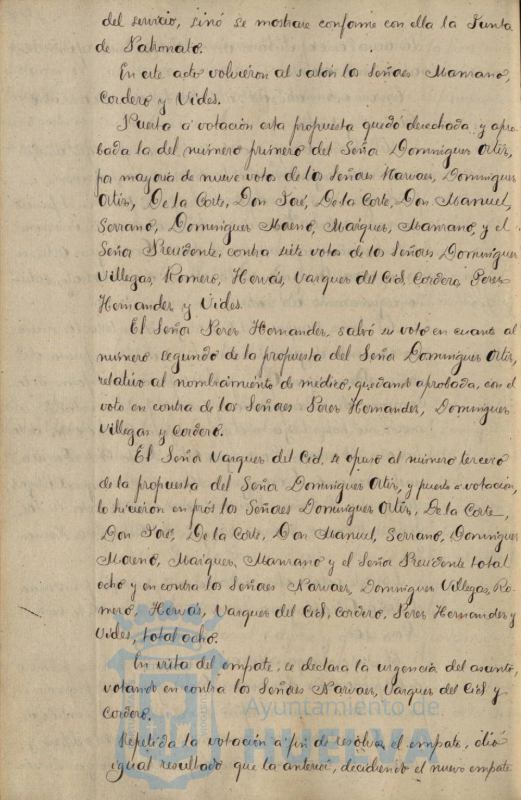 del servicio, sinó se mostrase conforme con ella la Junta
de Patronato.
En este acto volvieron al salón los Señores Manzano,
Cordero y Vides.
Puesta a votación esta propuesta quedó desechada y apro-
bada la del número primero del Señor Dominguez Ortiz,
por mayoria de nueve votos de los Señores Narvaez, Dominguez
Ortiz, De la Corte, Don José, De la Corte, Don Manuel,
Serrano, Dominguez Moreno, Marquez, Manzano, y el
Señor Presidente, contra siete votos de los Señores Dominguez
Villegas, Romero, Hervás, Vazquez del Cid, Cordero, Perez
Hernandez y Vides.
El Señor Perez Hernandez, salvó su voto en cuanto al
número segundo de la propuesta del Señor Dominguez Ortiz,
relativo al nombramiento de médico, quedando aprobada, con el
voto en contra de los Señores Perez Hernandez, Dominguez
Villegas y Cordero.
El Señor Vazquez del Cid, se opuso al número tercero
de la propuesta del Señor Dominguez Ortiz, y puesto a votación,
lo hicieron en prós los Señores Dominguez Ortiz, De la Corte,
Don José, De la Corte, Don Manuel, Serrano, Dominguez
Moreno, Marquez, Manzano y el Señor Presidente total
ocho y en contra los Señores Narvaez, Dominguez Villegas, Ro-
mero, Hervás, Vazquez del Cid, Cordero, Perez Hernandez y
Vides, total ocho.
En vista del empate, se declara la urgencia del asunto,
votando en contra los Señores Narvaez, Vazquez del Cid y
Cordero.
Repetida la votación a fin de resolver el empate, dió
igual resultado que la anterior, decidiendo el nuevo empate
Ayuntamiento de
HUELVA